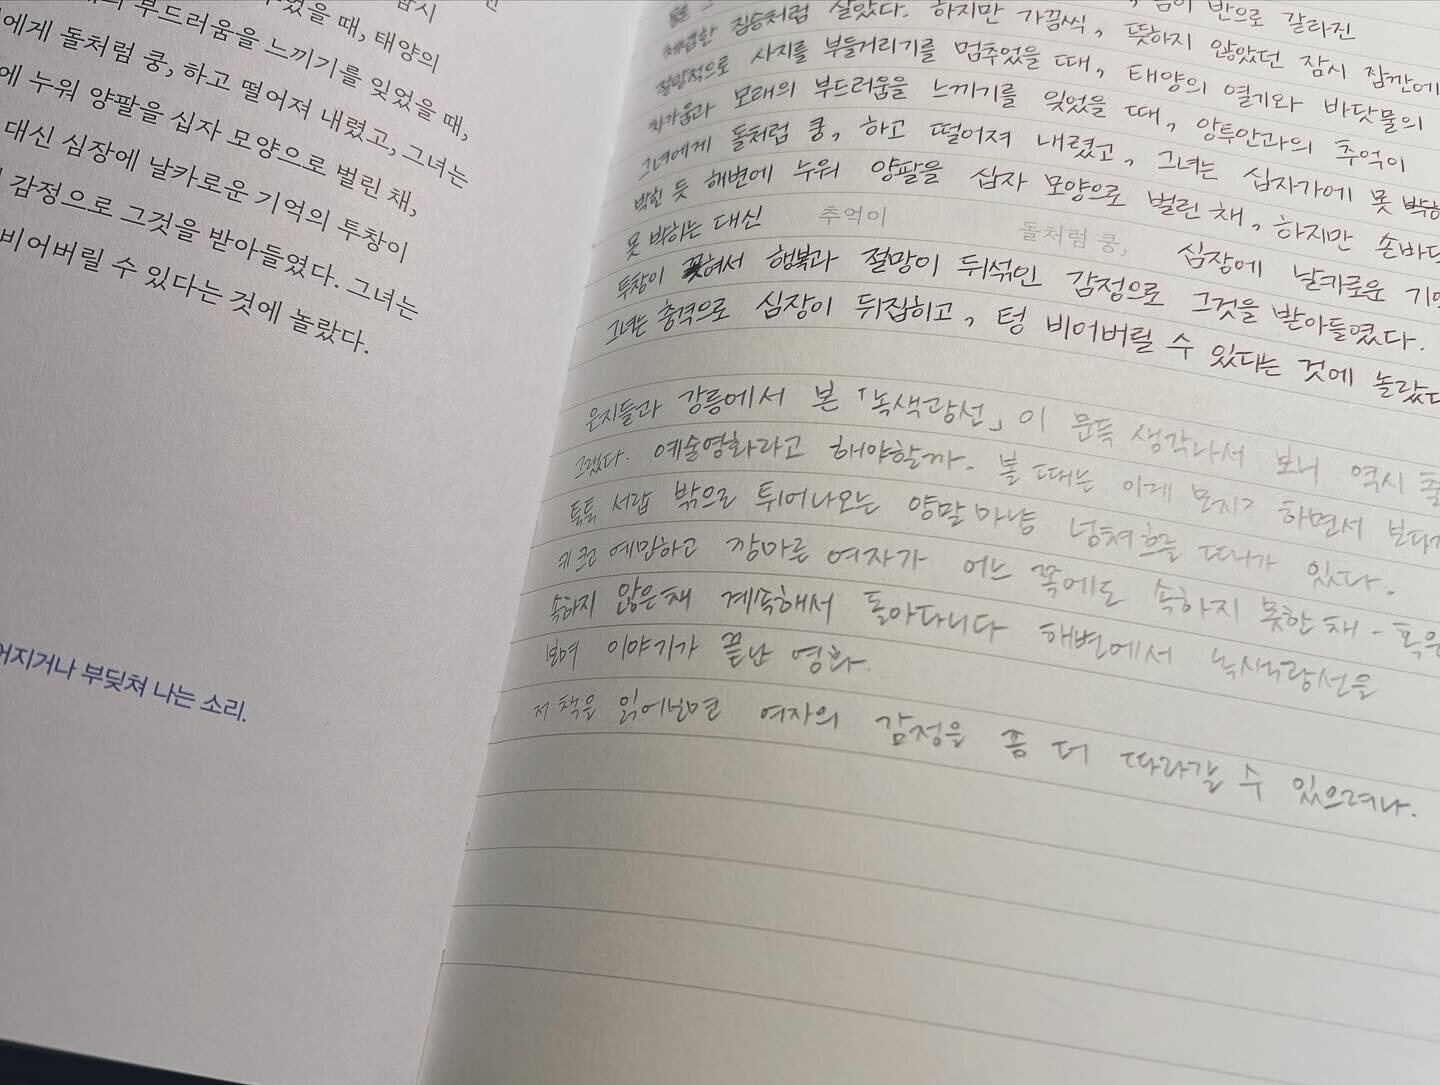 부드러움을 느끼기를 잊었을 때, 태양의
에게 돌처럼 쿵, 하고 떨어져 내렸고, 그녀는
에 누워 양팔을 십자 모양으로 벌린 채,
대신 심장에 날카로운 기억의 투창이
감정으로 그것을 받아들였다. 그녀는
비어버릴 수 있다는 것에 놀랐다.
어지거나 부딪쳐 나는 소리.
몸이 반으로 갈라진
체념한 짐승처럼 살았다. 하지만 가끔씩, 뜻하지 않았던 잠시 잠깐에
절망적으로 사지를 부들거리기를 멈추었을 때, 태양의 열기와 바닷물의
차가움과 모래의 부드러움을 느끼기를 잊었을 때, 앙투안과의 추억이
그녀에게 돌처럼 쿵, 하고 떨어져 내렸고, 그녀는 십자가에 못 박힌
박힌 듯 해변에 누워 양팔을 십자 모양으로 벌린 채, 하지만 손바닥
못 박하는 대신 추억이 돌처럼 쿵, 심장에 날카로운 기억
투창이 꽂혀서 행복과 절망이 뒤섞인 감정으로 그것을 받아들였다.
그녀는 충격으로 심장이 뒤집히고, 텅 비어버릴 수 있다는 것에 놀랐다
은지들과 강릉에서 본 「녹색광선」이 문득 생각나서 보니 역시
그랬다. 예술영화라고 해야할까. 볼 때는 이게 뭔지? 하면서 보다가
툭툭 서랍 밖으로 튀어나오는 양말마냥 넘쳐흐를 때가 있다.
키크고 예민하고 깡마른 여자가 어느 쪽에도 속하지 못한 채 - 혹은
속하지 않은채 계속해서 돌아다니다 해변에서 녹색광선을
보며 이야기가 끝난 영화.
저 책을 읽어본다면 여자의 감정을 좀 더 따라갈 수 있으려나.